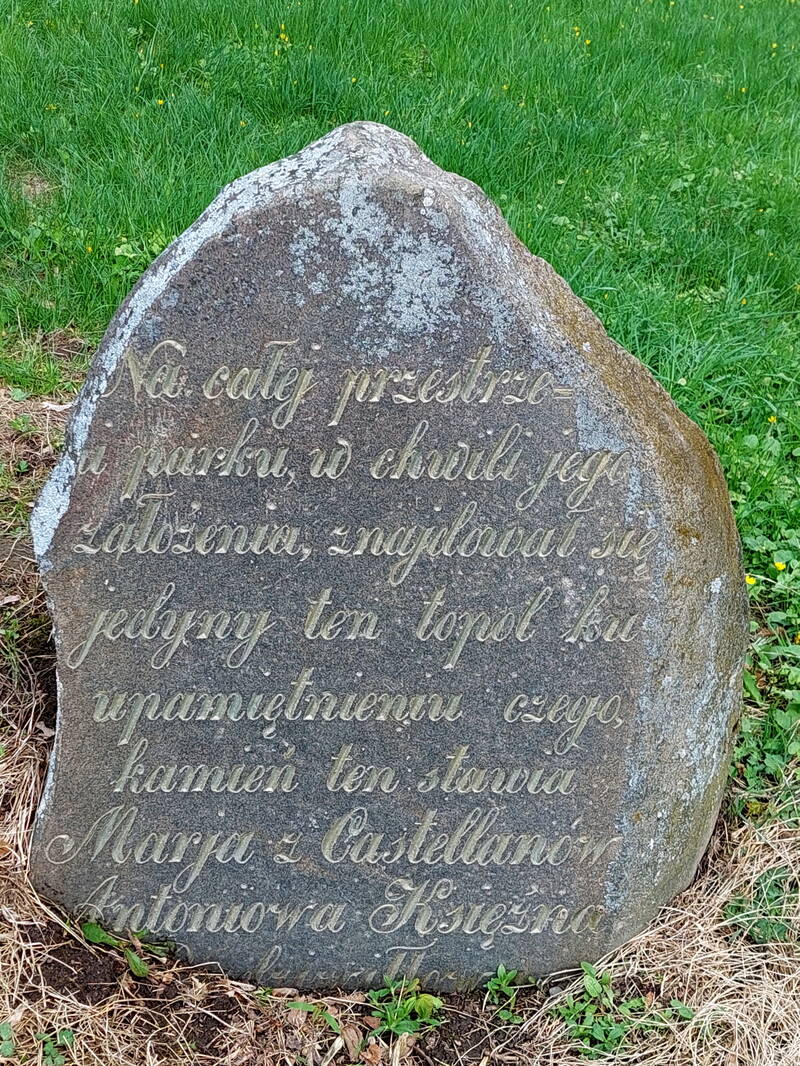 Na całej przestrze=
ni parku, w chwili jego
założenia, znajdował się
jedyny ten topol ku
upamiętnieniu czego,
kamień ten stawia
Marja z Castellanów
Antoniowa Księżna